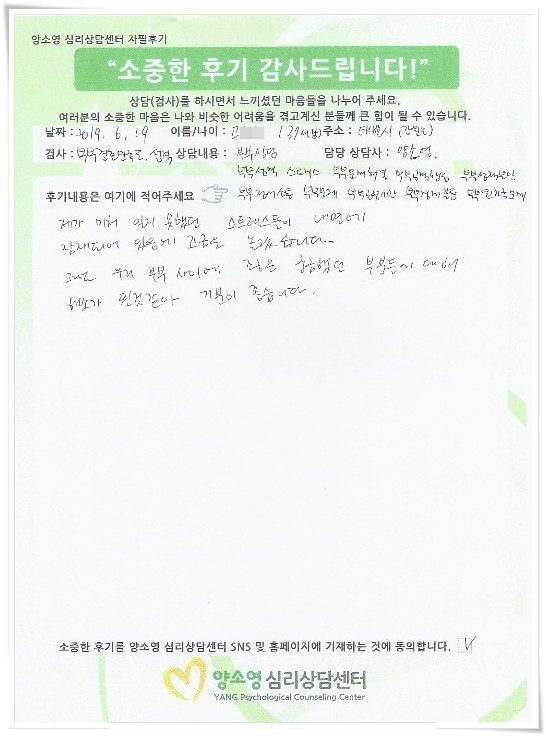 양소영 심리상담센터 자필후기
“소중한 후기 감사드립니다!”
상담(검사)를 하시면서 느끼셨던 마음들을 나누어 주세요.
여러분의 소중한 마음은 나와 비슷한 어려움을 겪고계신 분들께 큰 힘이 될 수 있습니다.
날짜 : 2019. 6. 19 이름/나이 : 고 / 37세(남) 주소 : 태백시 (강원도)
검사 : 부부결혼만족도, 성격, 상담내용 : 부부상담 담당 상담사 : 양소영.
부부성격 스트레스
후기내용은 여기에 적어주세요
제가 미처 알지 못했던 스트레스들이 내면에
잠재되어 있음에 조금은 놀랐습니다.
그래도 우리 부부 사이에 조금은 궁금했던 부분들에 대해
해소가 된것같아 기분이 좋습니다.
소중한 후기를 양소영 심리상담센터 SNS 및 홈페이지에 기재하는 것에 동의합니다. V
양소영 심리상담센터
YANG Psychological Counseling Center